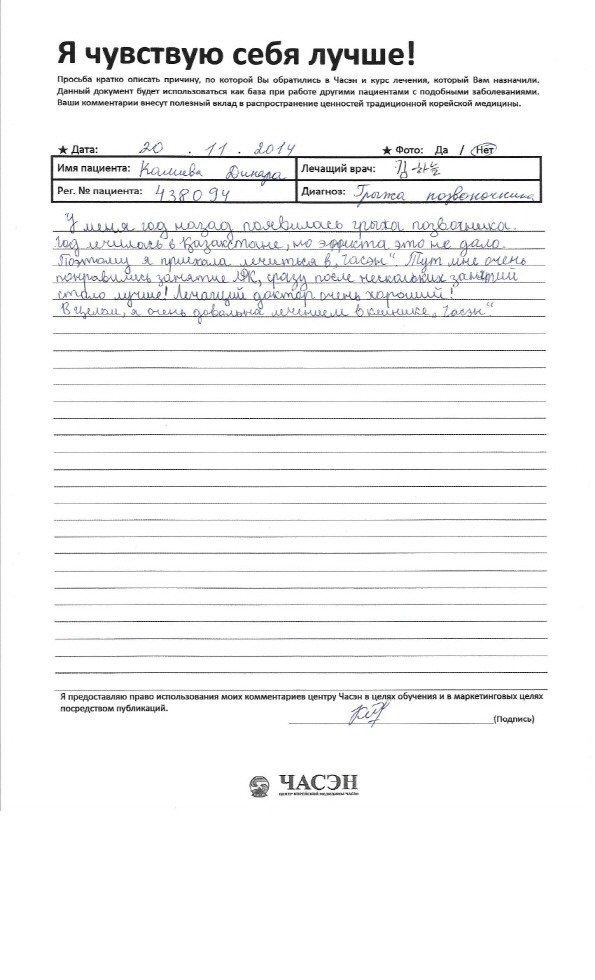 Я чувствую себя лучше!
Просьба кратко описать причину, по которой Вы обратились в Часэн и курс лечения, который Вам назначили.
Данный документ будет использоваться как база при работе другими пациентами с подобными заболеваниями.
Ваши комментарии внесут полезный вклад в распространение ценностей традиционной корейской медицины.
★ Дата: 20 . 11 . 2014 ★ Фото: Да / Нет
Имя пациента: Калиева Динара Лечащий врач: 김하늘
Рег. № пациента: 438094 Диагноз: Грыжа позвоночника
У меня год назад появилась грыжа позвотника.
Год лчилась в Казахстане, но эффкта это не дало.
Поэтому я приехала лечиться в „Часэн“ Тут мне очень
понравились занятие ЛФК, сразу после нескольких занятий
стало лучше! Лечащий доктор очень хороший!
В целом, я очень довальна лечением в клинике „Часэн“.
Я предоставляю право использования моих комментариев центру Часэн в целях обучения и в маркетинговых целях
посредством публикаций.
(Подпись)
ЧАСЭН
ЦЕНТР КОРЕЙСКОЙ МЕДИЦИНЫ ЧАСЭН